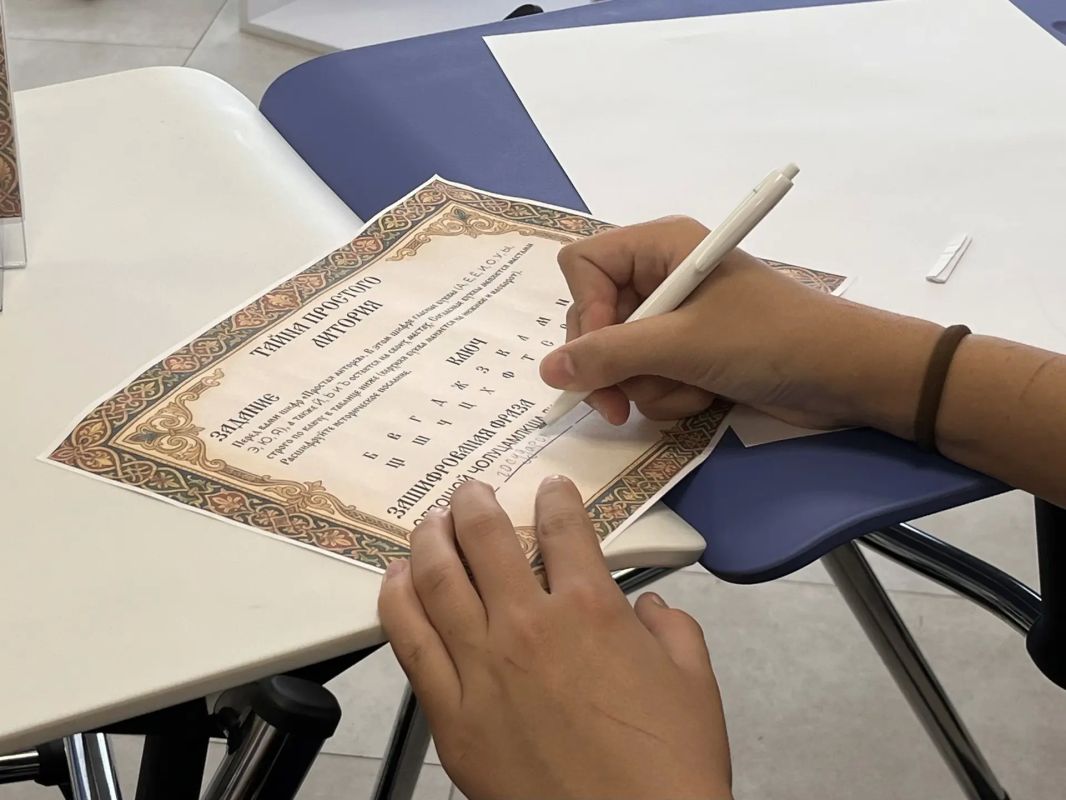 ТАЙНА ПРОСТОГО
ЛИТОРИЯ
ЗАДАНИЕ
Перед вами шифр «Простая литорея». В этом шифре гласные буквы (А, Е, Ё, И, О, У, Ы,
Э, Ю, Я), а также Й, Ь и Ъ остаются на своих местах. Согласные буквы меняются местами
строго по ключу в таблице ниже (верхняя буква меняется на нижнюю и наоборот).
Расшифруйте историческое послание.
КЛЮЧ
Б В Г Д Ж З К Л М Н
Щ Ш Ч Ц Х Ф Т С
ЗАШИФРОВАННАЯ ФРАЗА
ЧОЛУЦАМЛКША
государ